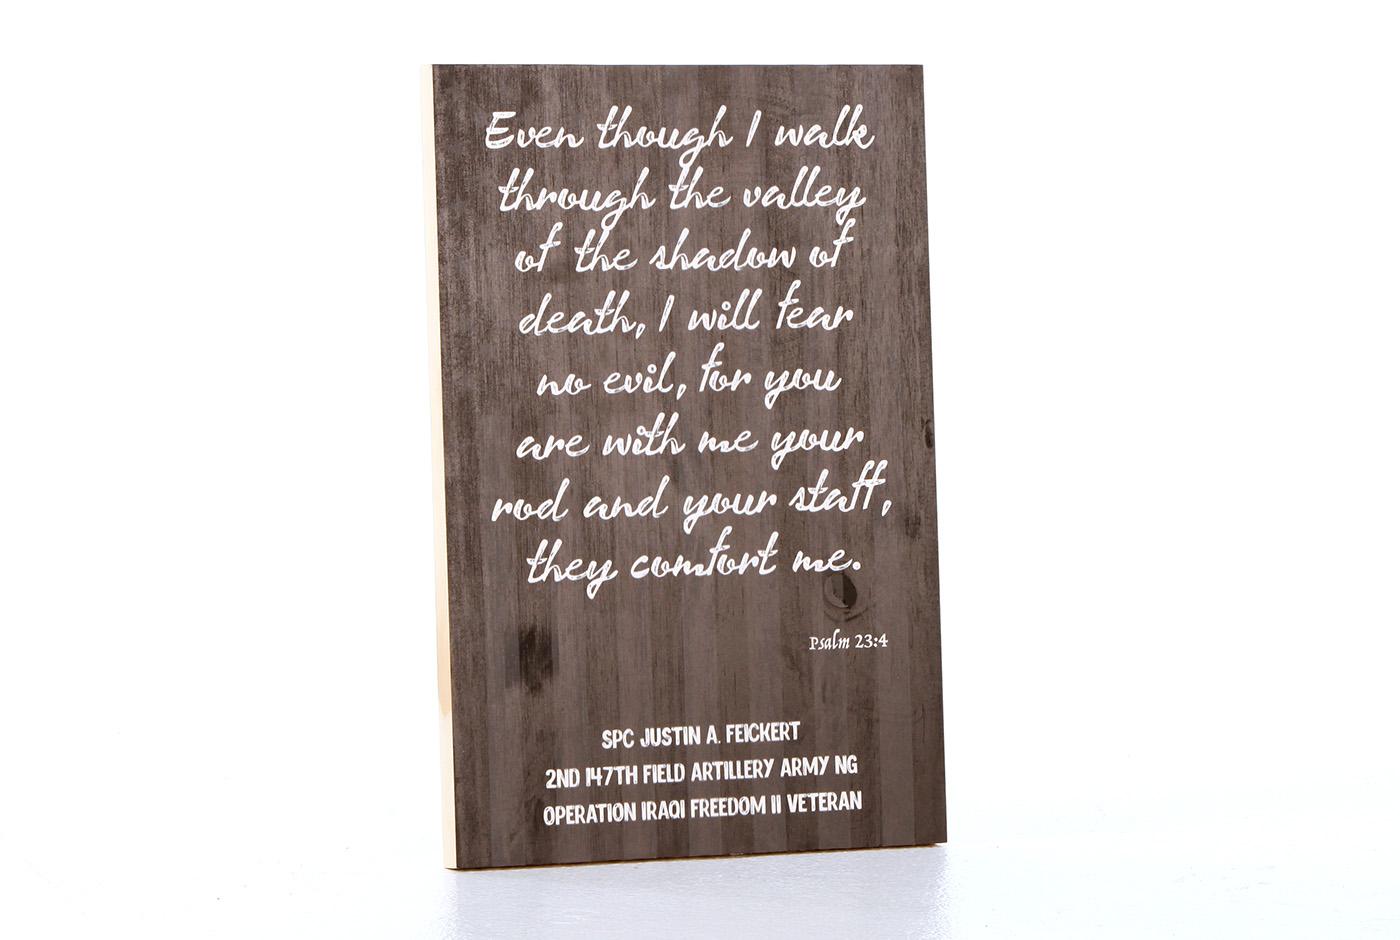 Even though I walk
through the valley
of the shadow of
death, I will fear
no evil, for you
are with me your
rod and your staff,
they comfort me.
Psalm 23:4
SPC JUSTIN A. FEICKERT
2ND 147TH FIELD ARTILLERY ARMY NG
OPERATION IRAQI FREEDOM II VETERAN